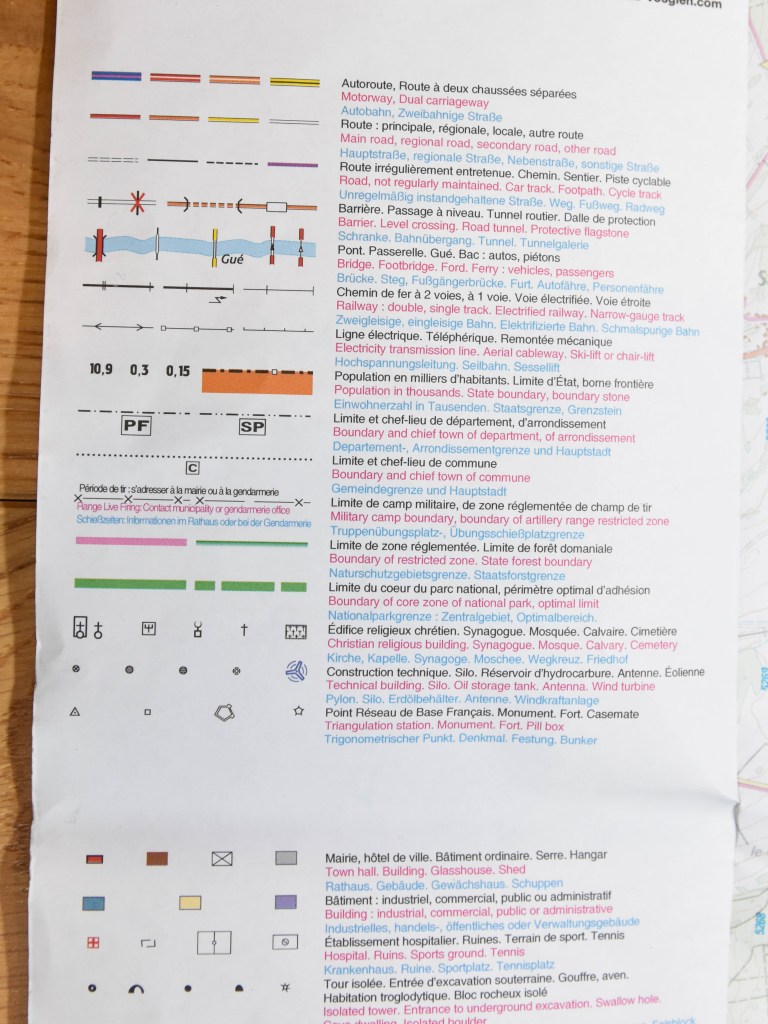 vosgien.com
Autoroute, Route à deux chaussées séparées
Motorway, Dual carriageway
Autobahn, Zweibahnige Straße
Route : principale, régionale, locale, autre route
Main road, regional road, secondary road, other road
Hauptstraße, regionale Straße, Nebenstraße, sonstige Straße
Route irrégulièrement entretenue. Chemin. Sentier. Piste cyclable
Road, not regularly maintained. Car track. Footpath. Cycle track
Unregelmäßig instandgehaltene Straße. Weg. Fußweg. Radweg
Barrière. Passage à niveau. Tunnel routier. Dalle de protection
Barrier. Level crossing. Road tunnel. Protective flagstone
Schranke. Bahnübergang. Tunnel. Tunnelgalerie
Gué
Pont. Passerelle. Gué. Bac : autos, piétons
Bridge. Footbridge. Ford. Ferry : vehicles, passengers
Brücke. Steg, Fußgängerbrücke. Furt. Autofähre, Personenfähre
Chemin de fer à 2 voies, à 1 voie. Voie électrifiée. Voie étroite
Railway : double, single track. Electrified railway. Narrow-gauge track
Zweigleisige, eingleisige Bahn. Elektrifizierte Bahn. Schmalspurige Bahn
Ligne électrique. Téléphérique. Remontée mécanique
Electricity transmission line. Aerial cableway. Ski-lift or chair-lift
Hochspannungsleitung. Seilbahn. Sessellift
10,9 0,3 0,15
Population en milliers d'habitants. Limite d'État, borne frontière
Population in thousands. State boundary, boundary stone
Einwohnerzahl in Tausenden. Staatsgrenze, Grenzstein
PF SP
Limite et chef-lieu de département, d'arrondissement
Boundary and chief town of department, of arrondissement
Departement-, Arrondissementgrenze und Hauptstadt
C
Limite et chef-lieu de commune
Boundary and chief town of commune
Gemeindegrenze und Hauptstadt
Période de tir : s'adresser à la mairie ou à la gendarmerie
Range Live Firing: Contact municipality or gendarmerie office
Schießzeiten: Informationen im Rathaus oder bei der Gendarmerie
Limite de camp militaire, de zone réglementée de champ de tir
Military camp boundary, boundary of artillery range restricted zone
Truppenübungsplatz-, Übungsschießplatzgrenze
Limite de zone réglementée. Limite de forêt domaniale
Boundary of restricted zone. State forest boundary
Naturschutzgebietsgrenze. Staatsforstgrenze
Limite du coeur du parc national, périmètre optimal d'adhésion
Boundary of core zone of national park, optimal limit
Nationalparkgrenze : Zentralgebiet, Optimalbereich.
Édifice religieux chrétien. Synagogue. Mosquée. Calvaire. Cimetière
Christian religious building. Synagogue. Mosque. Calvary. Cemetery
Kirche, Kapelle. Synagoge. Moschee. Wegkreuz. Friedhof
Construction technique. Silo. Réservoir d'hydrocarbure. Antenne. Éolienne
Technical building. Silo. Oil storage tank. Antenna. Wind turbine
Pylon. Silo. Erdölbehälter. Antenne. Windkraftanlage
Point Réseau de Base Français. Monument. Fort. Casemate
Triangulation station. Monument. Fort. Pill box
Trigonometrischer Punkt. Denkmal. Festung. Bunker
Mairie, hôtel de ville. Bâtiment ordinaire. Serre. Hangar
Town hall. Building. Glasshouse. Shed
Rathaus. Gebäude. Gewächshaus. Schuppen
Bâtiment : industriel, commercial, public ou administratif
Building : industrial, commercial, public or administrative
Industrielles, handels-, öffentliches oder Verwaltungsgebäude
Établissement hospitalier. Ruines. Terrain de sport. Tennis
Hospital. Ruins. Sports ground. Tennis
Krankenhaus. Ruine. Sportplatz. Tennisplatz
Tour isolée. Entrée d'excavation souterraine. Gouffre, aven.
Habitation troglodytique. Bloc rocheux isolé
Isolated tower. Entrance to underground excavation. Swallow hole.
Cave dwelling. Isolated boulder
5269
5268
le